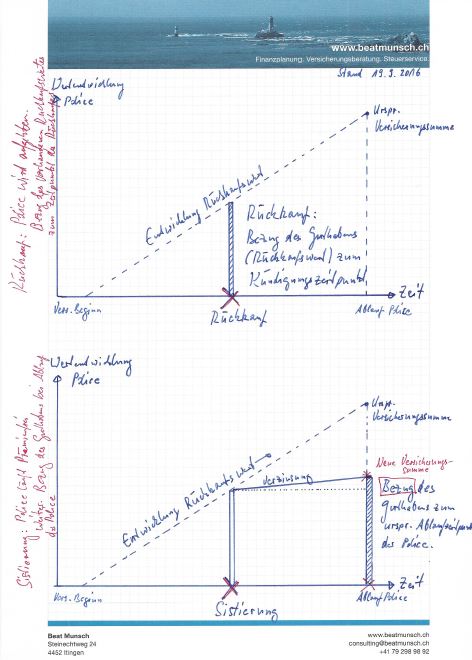 www.beatmunsch.ch
Finanzplanung. Versicherungsberatung. Steuerservice.
Stand 19.9.2016
Wertentwicklung
Police
Urspr.
Versicherungssumme
Entwicklung Rückkaufswert
Rückkauf:
Bezug des Guthabens
(Rückkaufswert) zum
Kündigungszeitpunkt
Zeit
Vers. Beginn
Ablauf Police
Rückkauf
Rückkauf: Police wird aufgehoben.
Bezug des vorhandenen Rückkaufswertes
zum Zeitpunkt des Rückkaufes
Wertentwicklung
Police
Urspr.
Versicherungssumme
Entwicklung Rückkaufswert
Verzinsung
Neue Versicherungs-
summe
Bezug des
Guthabens zum
urspr. Ablaufzeitpunkt
der Police.
Zeit
Vers. Beginn
Ablauf Police
Sistierung
Sistierung: Police läuft Prämienfrei
weiter. Bezug des Guthabens bei Ablauf
der Police
Beat Munsch
Steinechtweg 24
4452 Itingen
www.beatmunsch.ch
consulting@beatmunsch.ch
+41 79 298 98 92